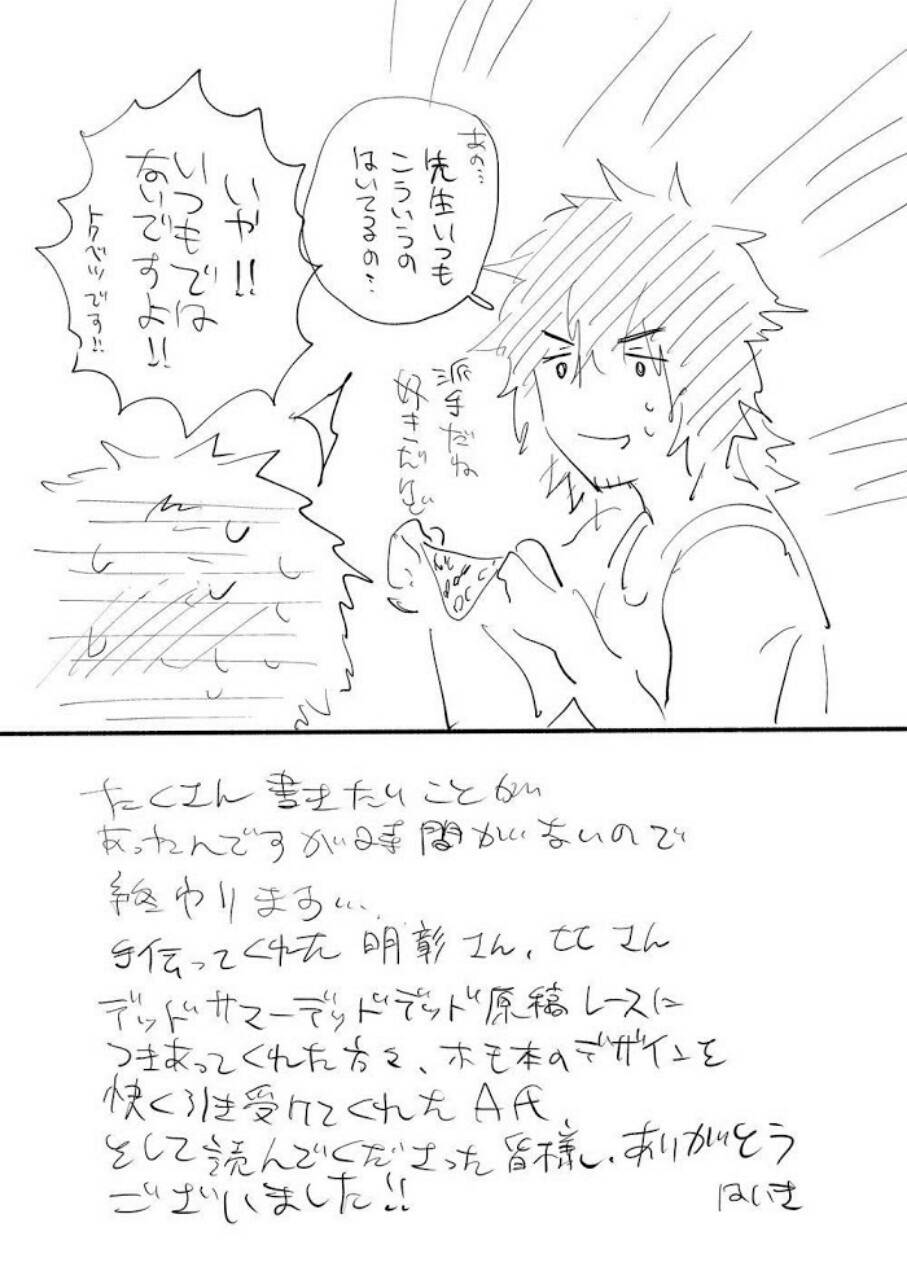 あの…
先生いつも
こういうの
はいてるの…
いや!!
いつもでは
ないですよ!!
トクベツです!!
派手だね
好きだけど
たくさん書きたいことが
あったんですが時間がないので
終わります…
手伝ってくれた 明彰さん、ヒヒさん
デッドサマーデッドデッド原稿レースに
つきあってくれた方々、ホモ本のデザインを
快く引き受けてくれたA氏
そして読んでくださった皆様、ありがとう
ございました!!
はいき